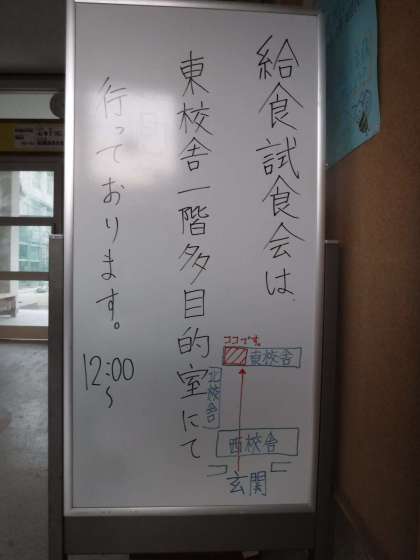 給食試食会は
東校舎一階多目的室にて
行っております。
12:00
〜
ココです。
東校舎
北校舎
西校舎
玄関